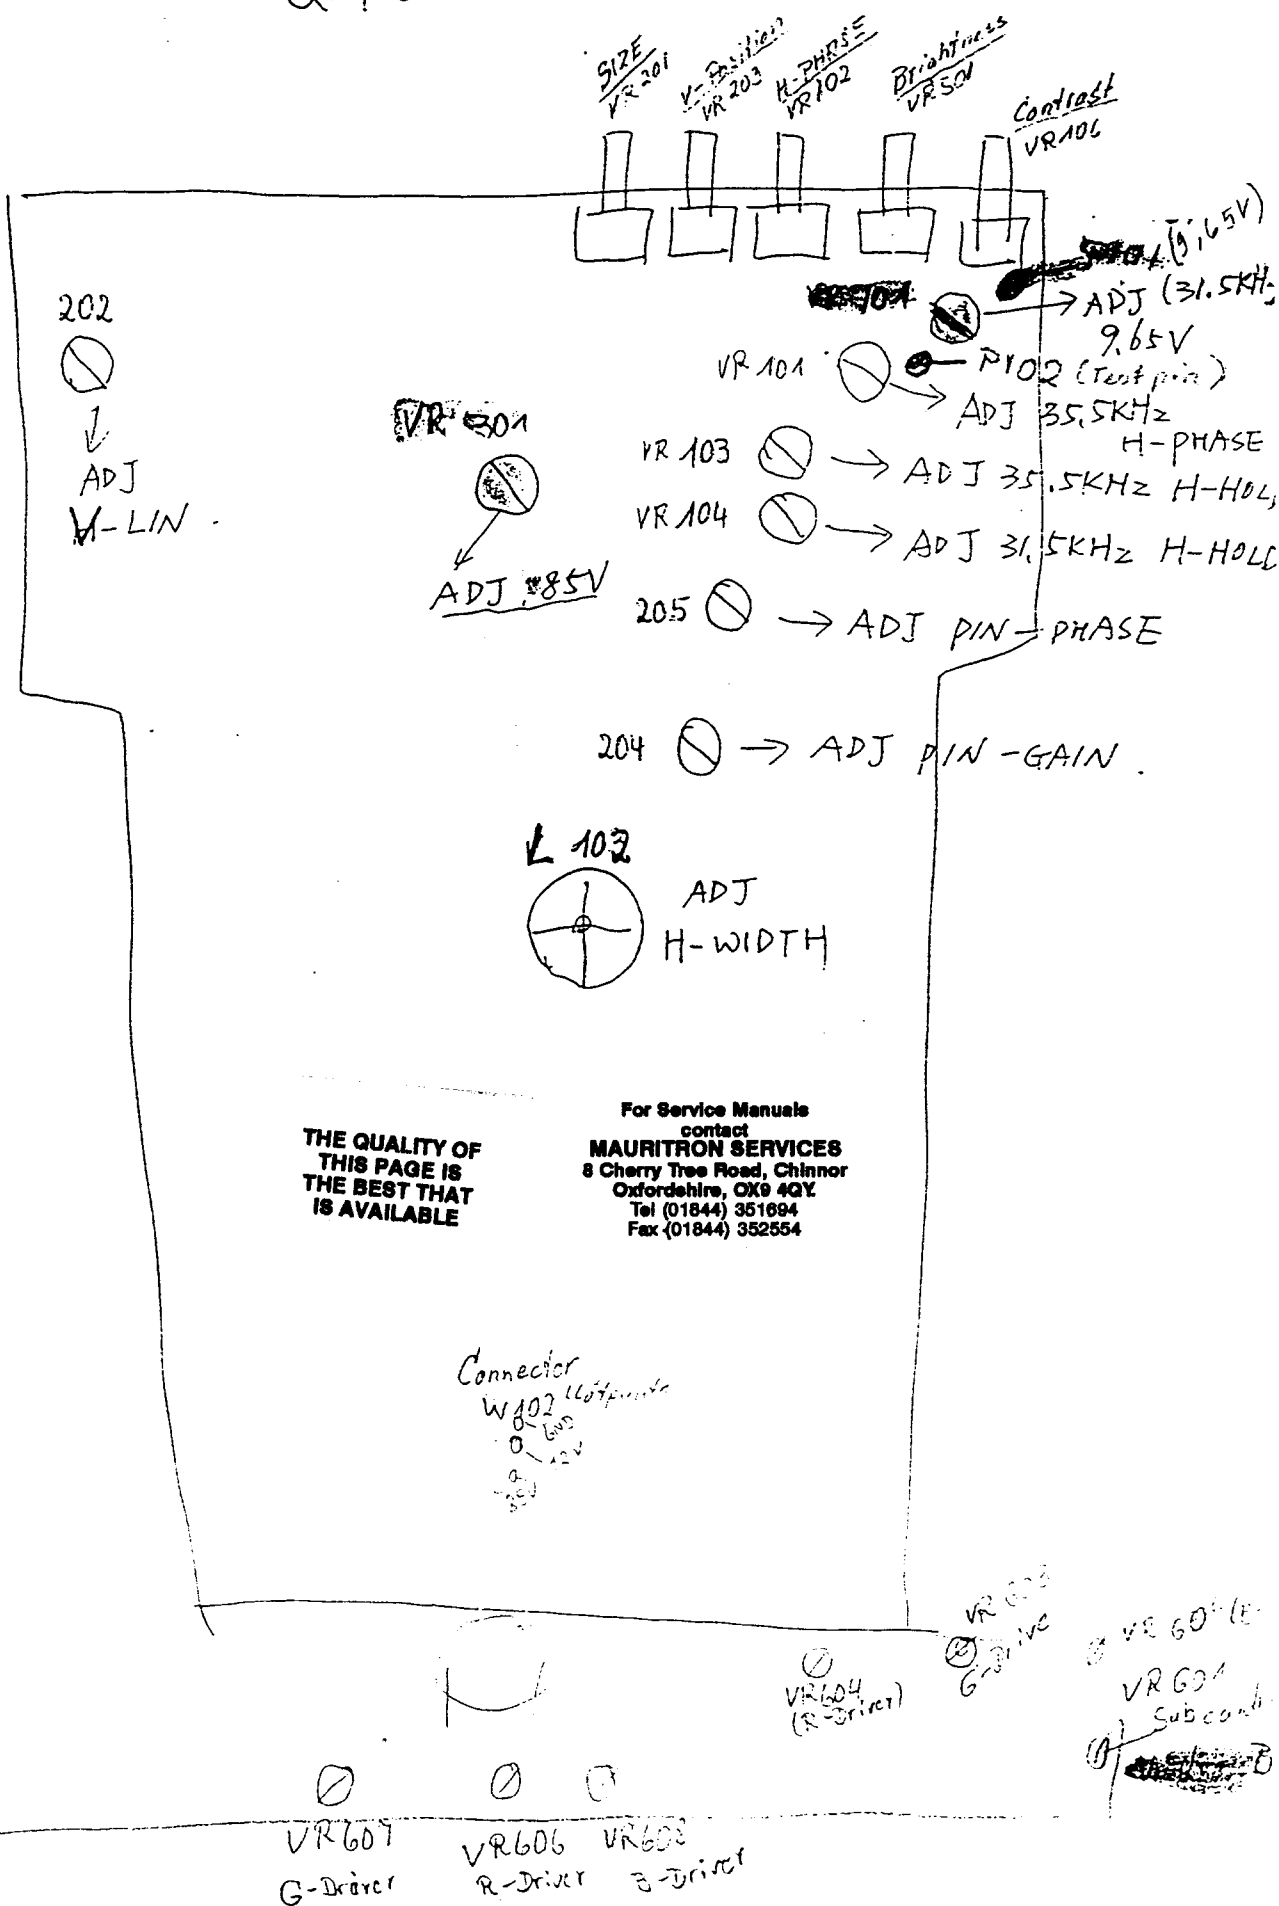 SIZE
VR201
V-Position
VR203
H-PHASE
VR102
Brightness
VR501
Contrast
VR106
(9,65V)
ADJ (31.5KHz
9,65V
202
ADJ
V-LIN
VR 301
ADJ 85V
VR 101
P102 (Test pin)
ADJ 35,5KHz
H-PHASE
VR 103
ADJ 35.5KHz H-HOL
VR 104
ADJ 31,5KHz H-HOLD
205
ADJ PIN-PHASE
204
ADJ PIN-GAIN
L 102
ADJ
H-WIDTH
THE QUALITY OF
THIS PAGE IS
THE BEST THAT
IS AVAILABLE
For Service Manuals
contact
MAURITRON SERVICES
8 Cherry Tree Road, Chinnor
Oxfordshire, OX9 4QY.
Tel (01844) 351694
Fax (01844) 352554
Connector
W102
GND
12V
85V
VR604
(R-Driver)
VR
G-Drive
VR 60
VR 601
Subcont
VR607
G-Draver
VR606
R-Driver
VR608
B-Driver